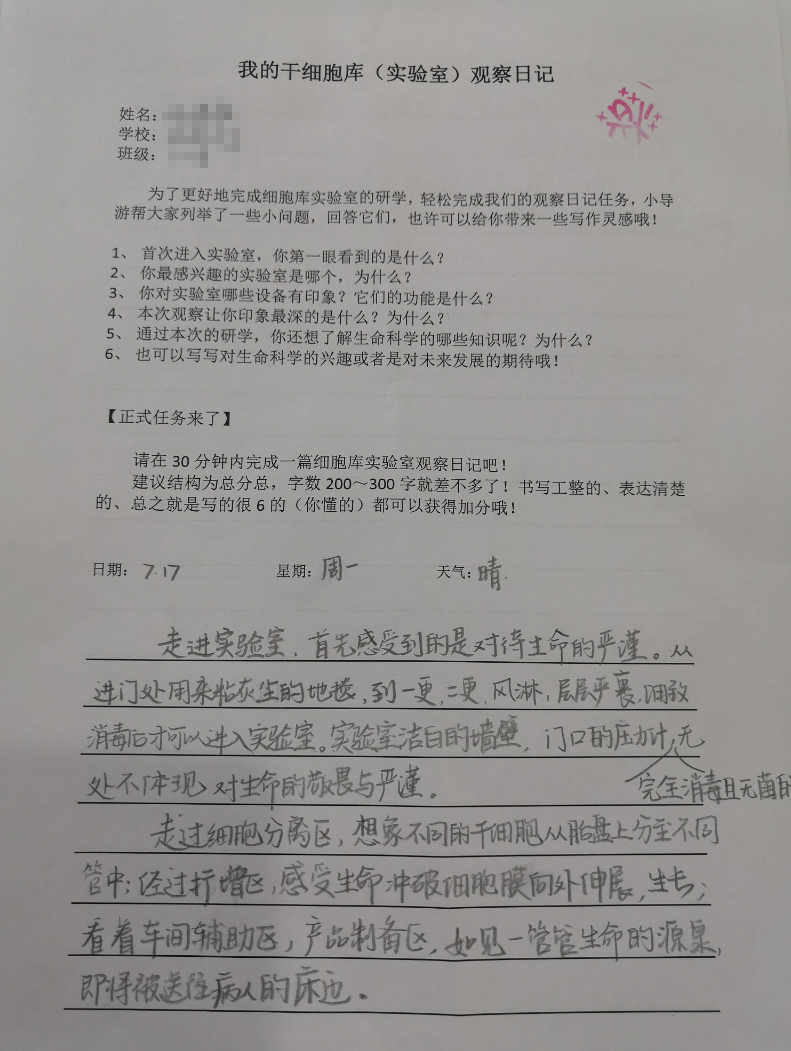 我的干细胞库（实验室）观察日记
姓名：
学校：
班级：
为了更好地完成细胞库实验室的研学，轻松完成我们的观察日记任务，小导
游帮大家列举了一些小问题，回答它们，也许可以给你带来一些写作灵感哦！
1、 首次进入实验室，你第一眼看到的是什么？
2、 你最感兴趣的实验室是哪个，为什么？
3、 你对实验室哪些设备有印象？它们的功能是什么？
4、 本次观察让你印象最深的是什么？为什么？
5、 通过本次的研学，你还想了解生命科学的哪些知识呢？为什么？
6、 也可以写写对生命科学的兴趣或者是对未来发展的期待哦！
【正式任务来了】
请在 30 分钟内完成一篇细胞库实验室观察日记吧！
建议结构为总分总，字数 200～300 字就差不多了！书写工整的、表达清楚
的、总之就是写的很 6 的（你懂的）都可以获得加分哦！
日期： 7.17 星期： 周一 天气： 晴.
走进实验室，首先感受到的是对待生命的严谨。从
进门处用来粘灰尘的地毯，到一更，二更，风淋，层层严裹，
消毒后才可以进入实验室。实验室洁白的墙壁，门口的压力计，无
处不体现对生命的敬畏与严谨。
完全消毒且无菌的
走过细胞分离区，想象不同的干细胞从胎盘上分至不同
管中；经过扩增区，感受生命冲破细胞膜向外伸展，生长；
看着车间辅助区，产品制备区，如见一管管生命的源泉，
即将被送往病人的床边。